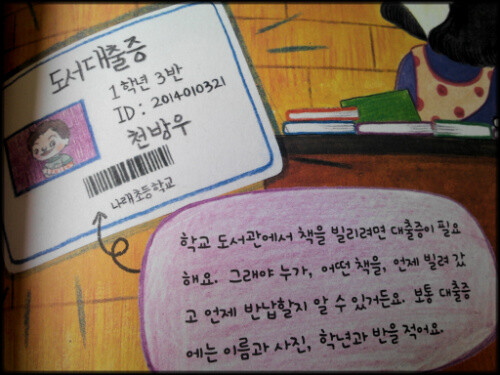 도서대출증
1학년 3반
ID : 2014010321
천방우
나래초등학교
학교 도서관에서 책을 빌리려면 대출증이 필요
해요. 그래야 누가, 어떤 책을, 언제 빌려 갔
고 언제 반납할지 알 수 있거든요. 보통 대출증
에는 이름과 사진, 학년과 반을 적어요.